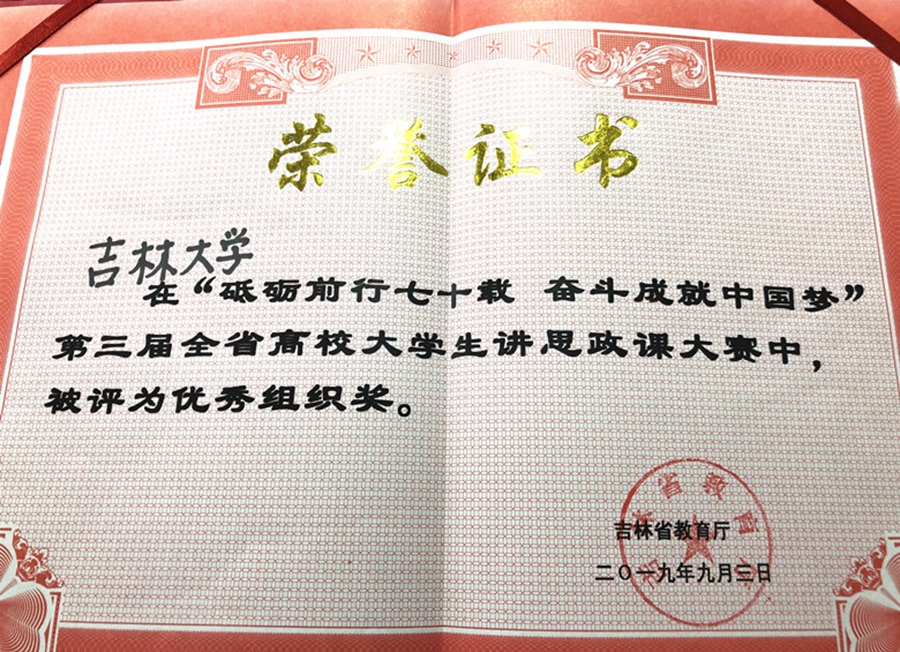 荣誉证书
吉林大学
在“砥砺前行七十载 奋斗成就中国梦”
第三届全省高校大学生讲思政课大赛中，
被评为优秀组织奖。
省教育
吉林省教育厅
二〇一九年九月三日